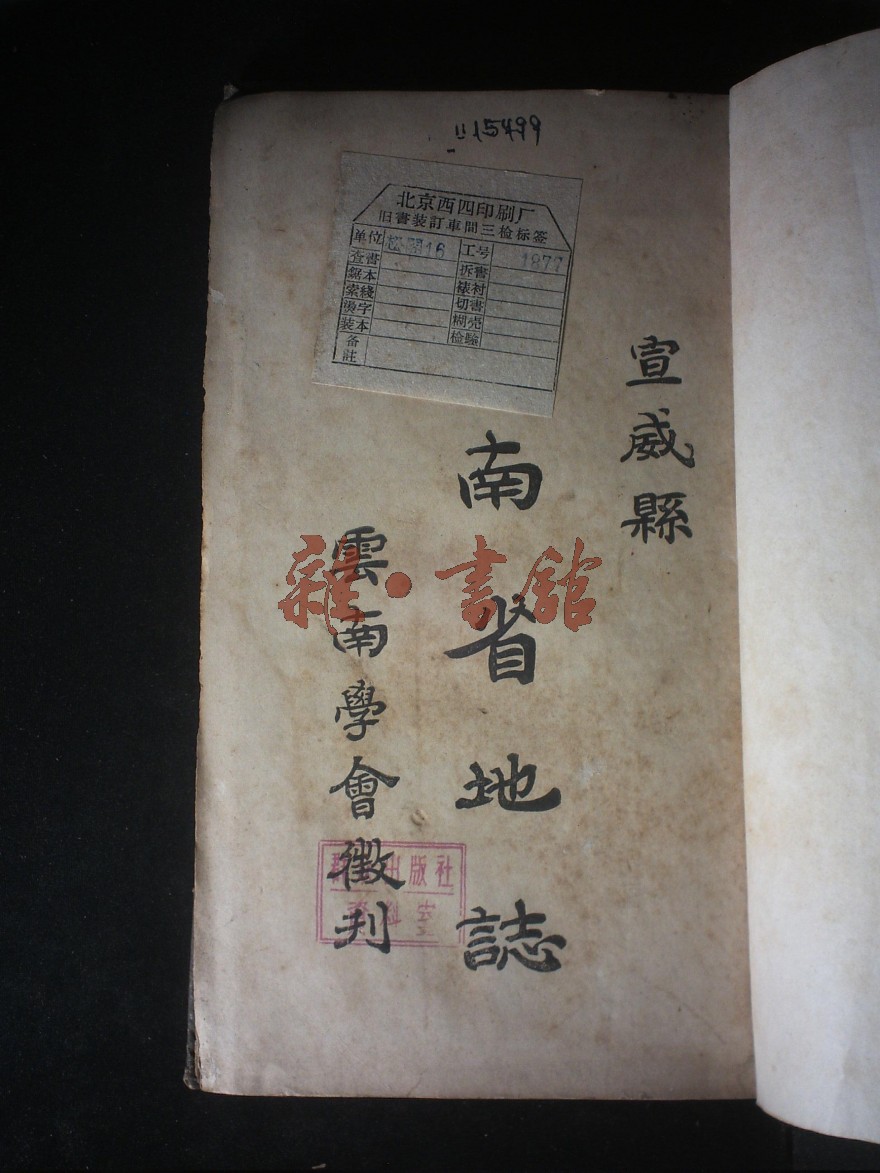 115499
北京西四印刷厂
旧書装訂車間三检标签
单位 16 工号 1877
查書 拆書
鋸本 裱衬
索綫 切書
燙字 糊壳
装本 检驗
备註
宣威縣
南省地誌
雲南學會徵刋
出版社
雜·書館